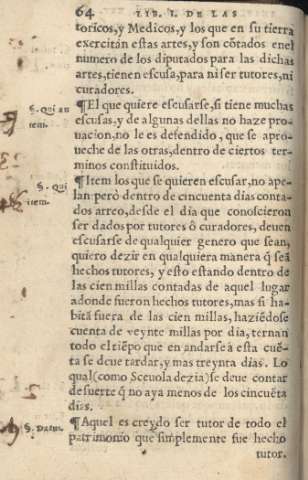 64 LIB. I. DE LAS
toricos, y Medicos, y los que en su tierra
exercitán estas artes, y son cōtados enel
numero de los diputados para las dichas
artes, tienen escusa, para ni ser tutores, ni
curadores.
§. Qui au
tem.
¶El que quiere escusarse, si tiene muchas
escusas, y de algunas dellas no haze pro
uacion, no le es defendido, que se apro
ueche de las otras, dentro de ciertos ter
minos constituidos.
§. Qui
autem.
¶Item los que se quieren escusar, no ape
lan: però dentro de cincuenta dias conta
dos arreo, desde el dia que conoscieron
ser dados por tutores ô curadores, deuen
escusarse de qualquier genero que sean,
quiero dezir en qualquiera manera q̃ seã
hechos tutores, y esto estando dentro de
las cien millas contadas de aquel lugar
adonde fueron hechos tutores, mas si ha-
bitã fuera de las cien millas, haziẽdose
cuenta de veynte millas por dia, ternan
todo el tiẽpo que en andarse á esta cuẽ-
ta se deue tardar, y mas treynta dias. Lo
qual (como Sceuola dezia) se deue contar
desuerte q̃ no aya menos de los cincuẽta
dias.
§. Datus.
¶Aquel es creydo ser tutor de todo el
patrimonio que simplemente fue hecho
tutor.